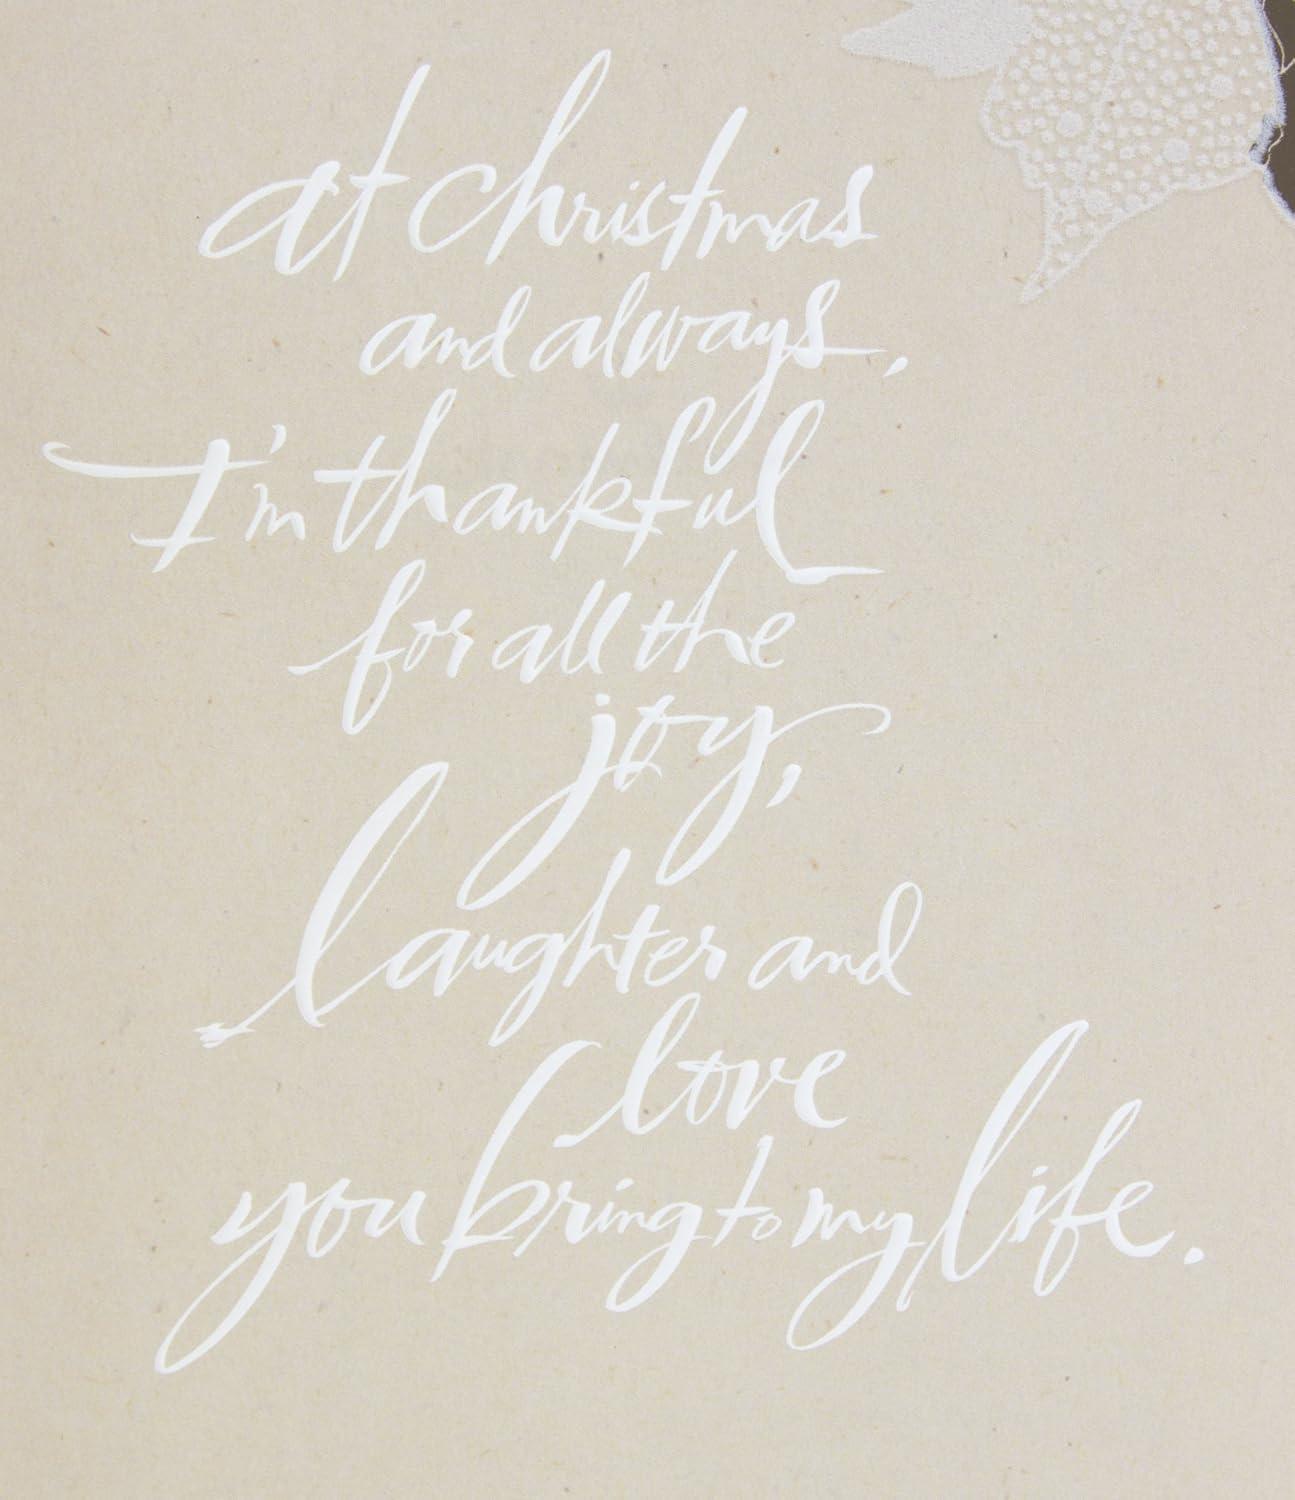 at christmas
and always,
I'm thankful
for all the
joy,
laughter and
love
you bring to my life.